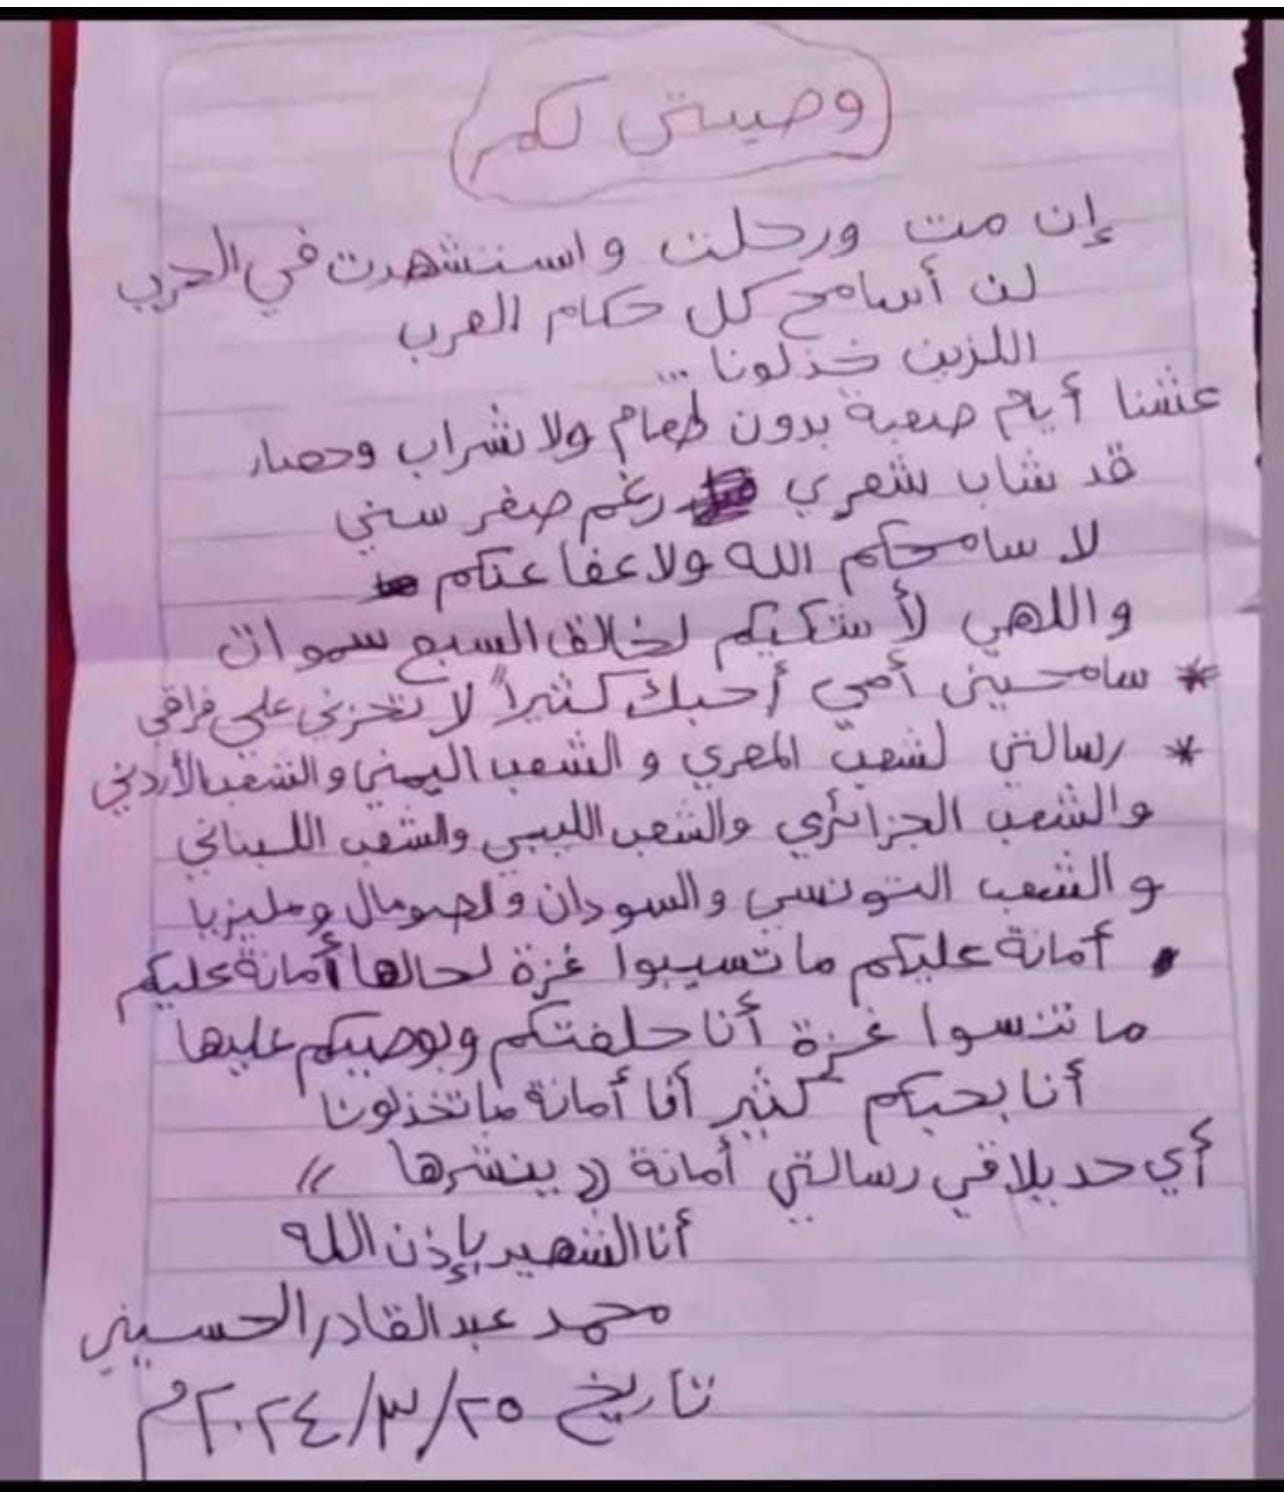 وصيتي لكم
إن مت ورحلت واستشهدت في الحرب
لن أسامح كل حكام العرب
اللزين خذلونا ...
عشنا أيام صعبة بدون طعام ولا شراب وحصار
قد شاب شعري رغم صغر سني
لا سامحكم الله ولا عفا عنكم
واللهي لأشكيكم لخالق السبع سموات
* سامحيني أمي أحبك كثيراً لا تحزني علي فراقي
* رسالتي لشعب المصري و الشعب اليمني والشعب الأردني
والشعب الجزائري والشعب الليبي والشعب اللبناني
و الشعب التونسي والسودان ولصومال ومليزيا
• أمانة عليكم ما تسيبوا غزة لحالها أمانة عليكم
ما تنسوا غزة أنا حلفتكم وبوصيكم عليها
أنا بحبكم كثير أنا أمانة ما تخذلونا
أي حد يلاقي رسالتي أمانة (( ينشرها ))
أنا الشهيد بإذن الله
محمد عبد القادر الحسيني
تاريخ ٢٥/٣/٢٠٢٤م